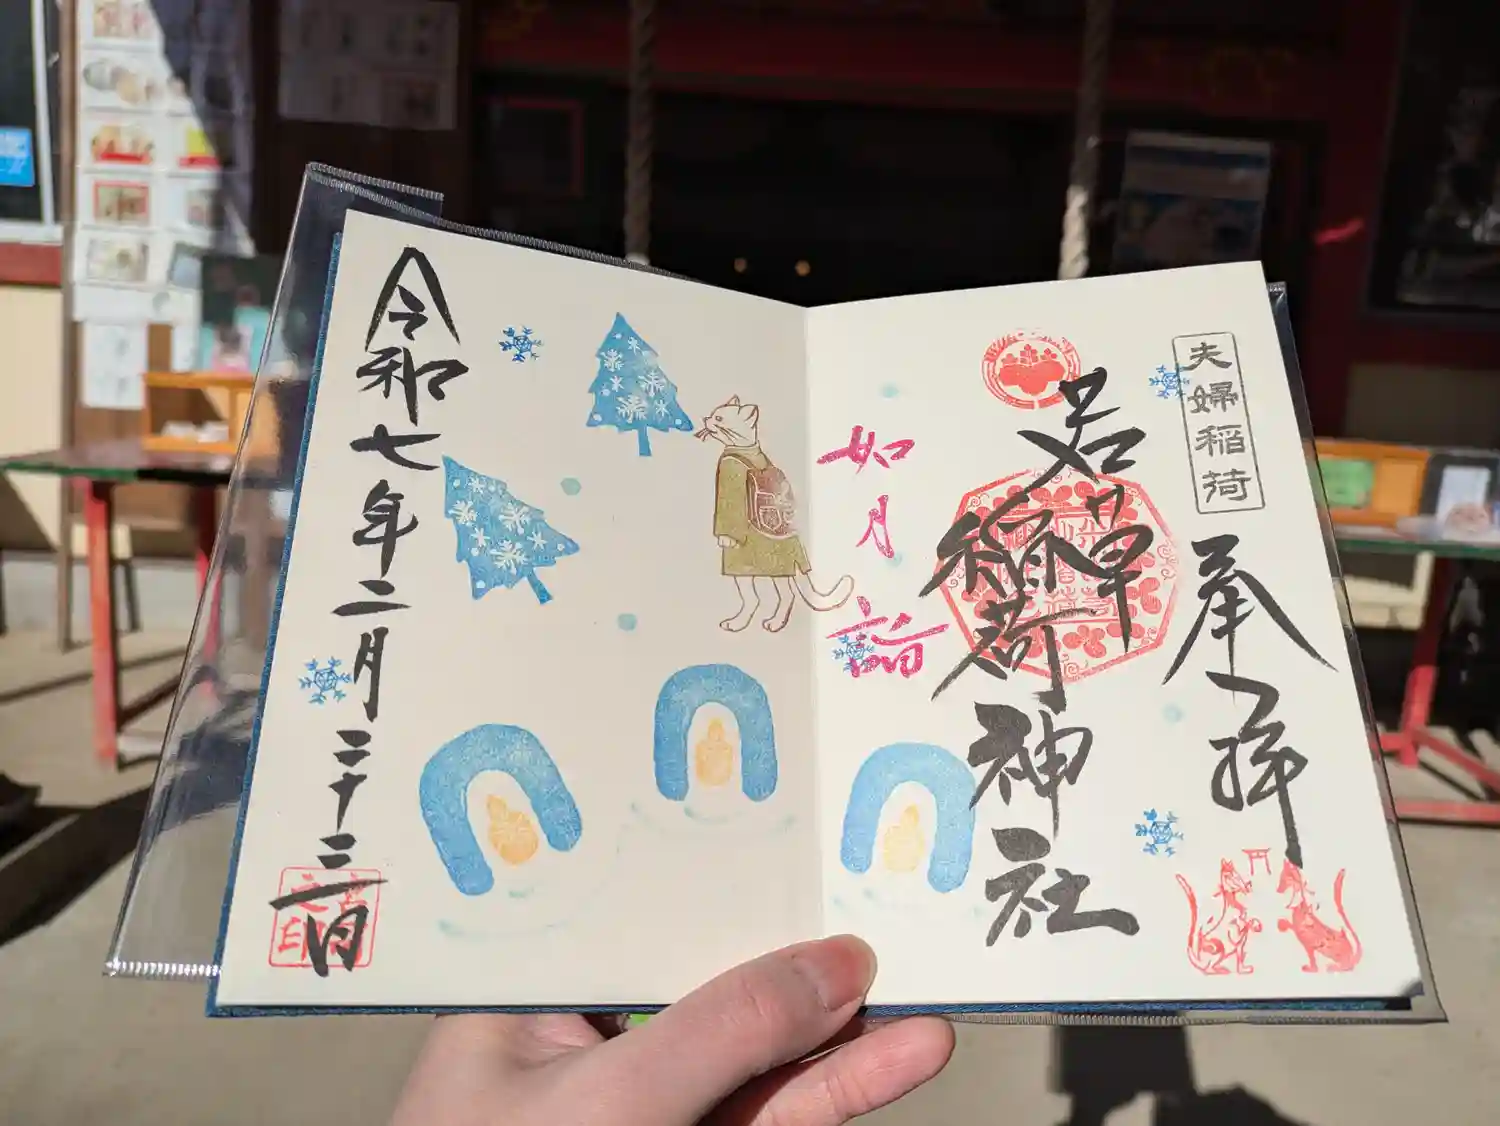 夫婦稲荷
奉拝
若草稲荷神社
如月詣
令和七年二月二十三日